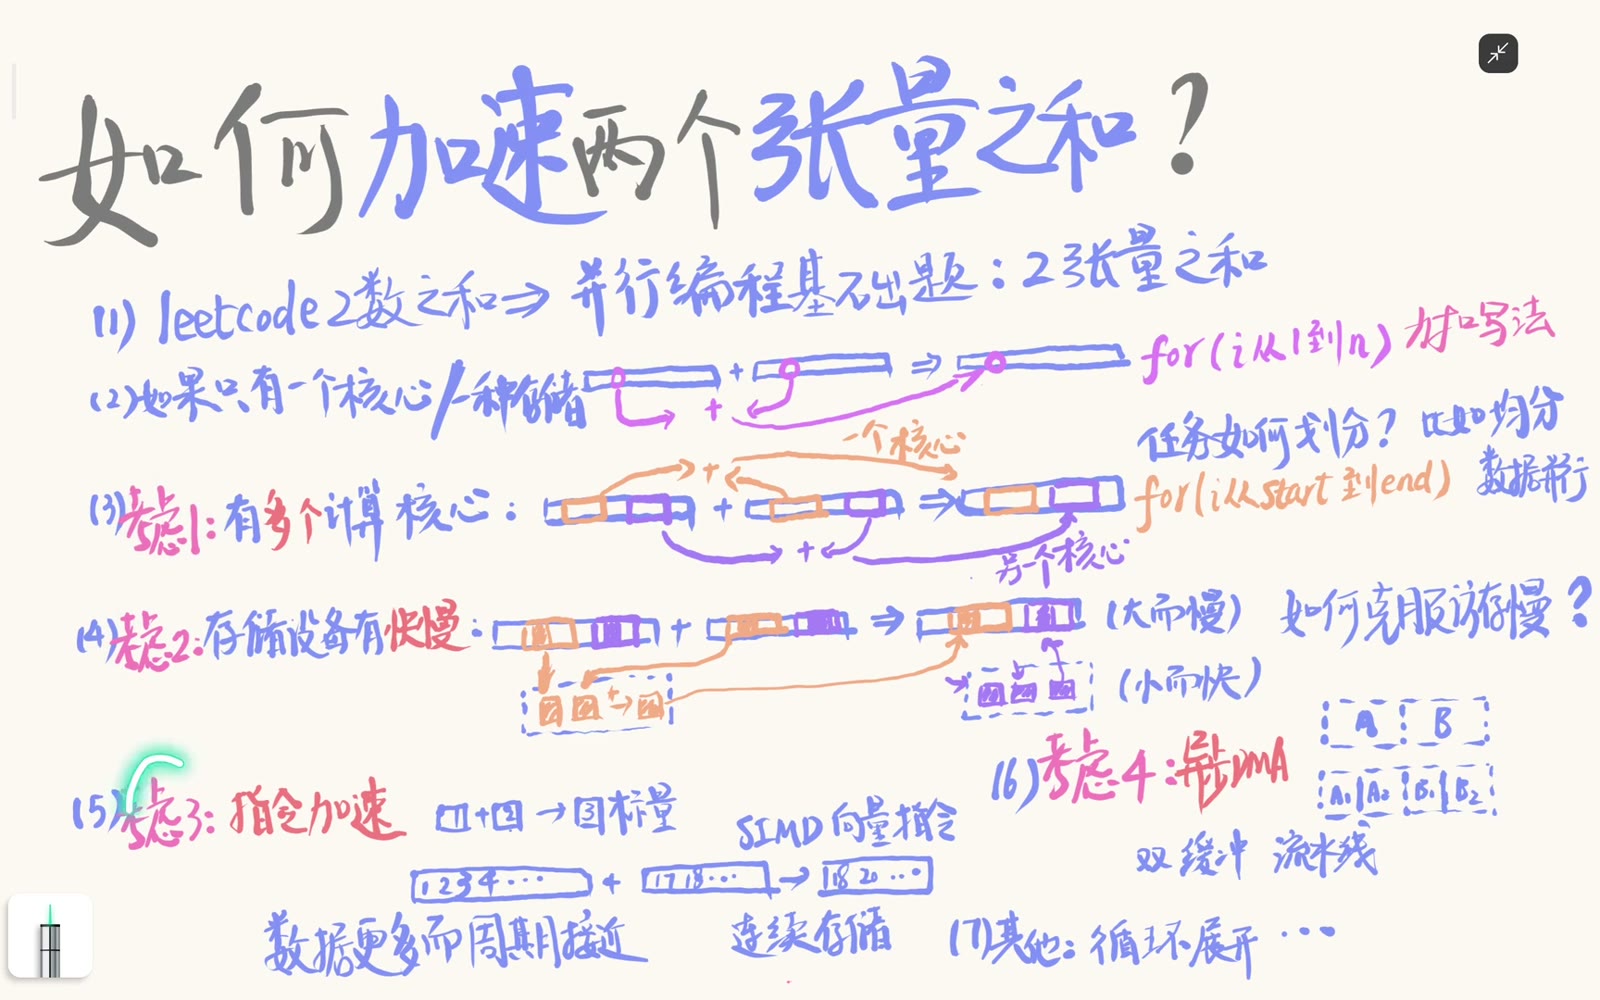 如何加速两个张量之和？
(1) leetcode 2数之和⇒ 并行编程基础题：2张量之和
(2)如果只有一个核心/一种存储 + ⇒ for(i从1到n)
+
任务如何划分？比如均分
一个核心
+
(3)考虑1：有多个计算核心： + ⇒ for(i从start到end) 数据并行
+
另一个核心
(4)考虑2：存储设备有快慢： + ⇒ (大而慢) 如何克服访存慢？
+ → (小而快)
A B
A1 A2 B1 B2
(5)考虑3：指令加速 1+2→3标量
SIMD向量指令
1 2 3 4 ··· + 17 18 ··· → 18 20 ···
数据更多而周期接近 连续存储
(6)考虑4：异步DMA
双缓冲 流水线
(7)其他：循环展开 ···